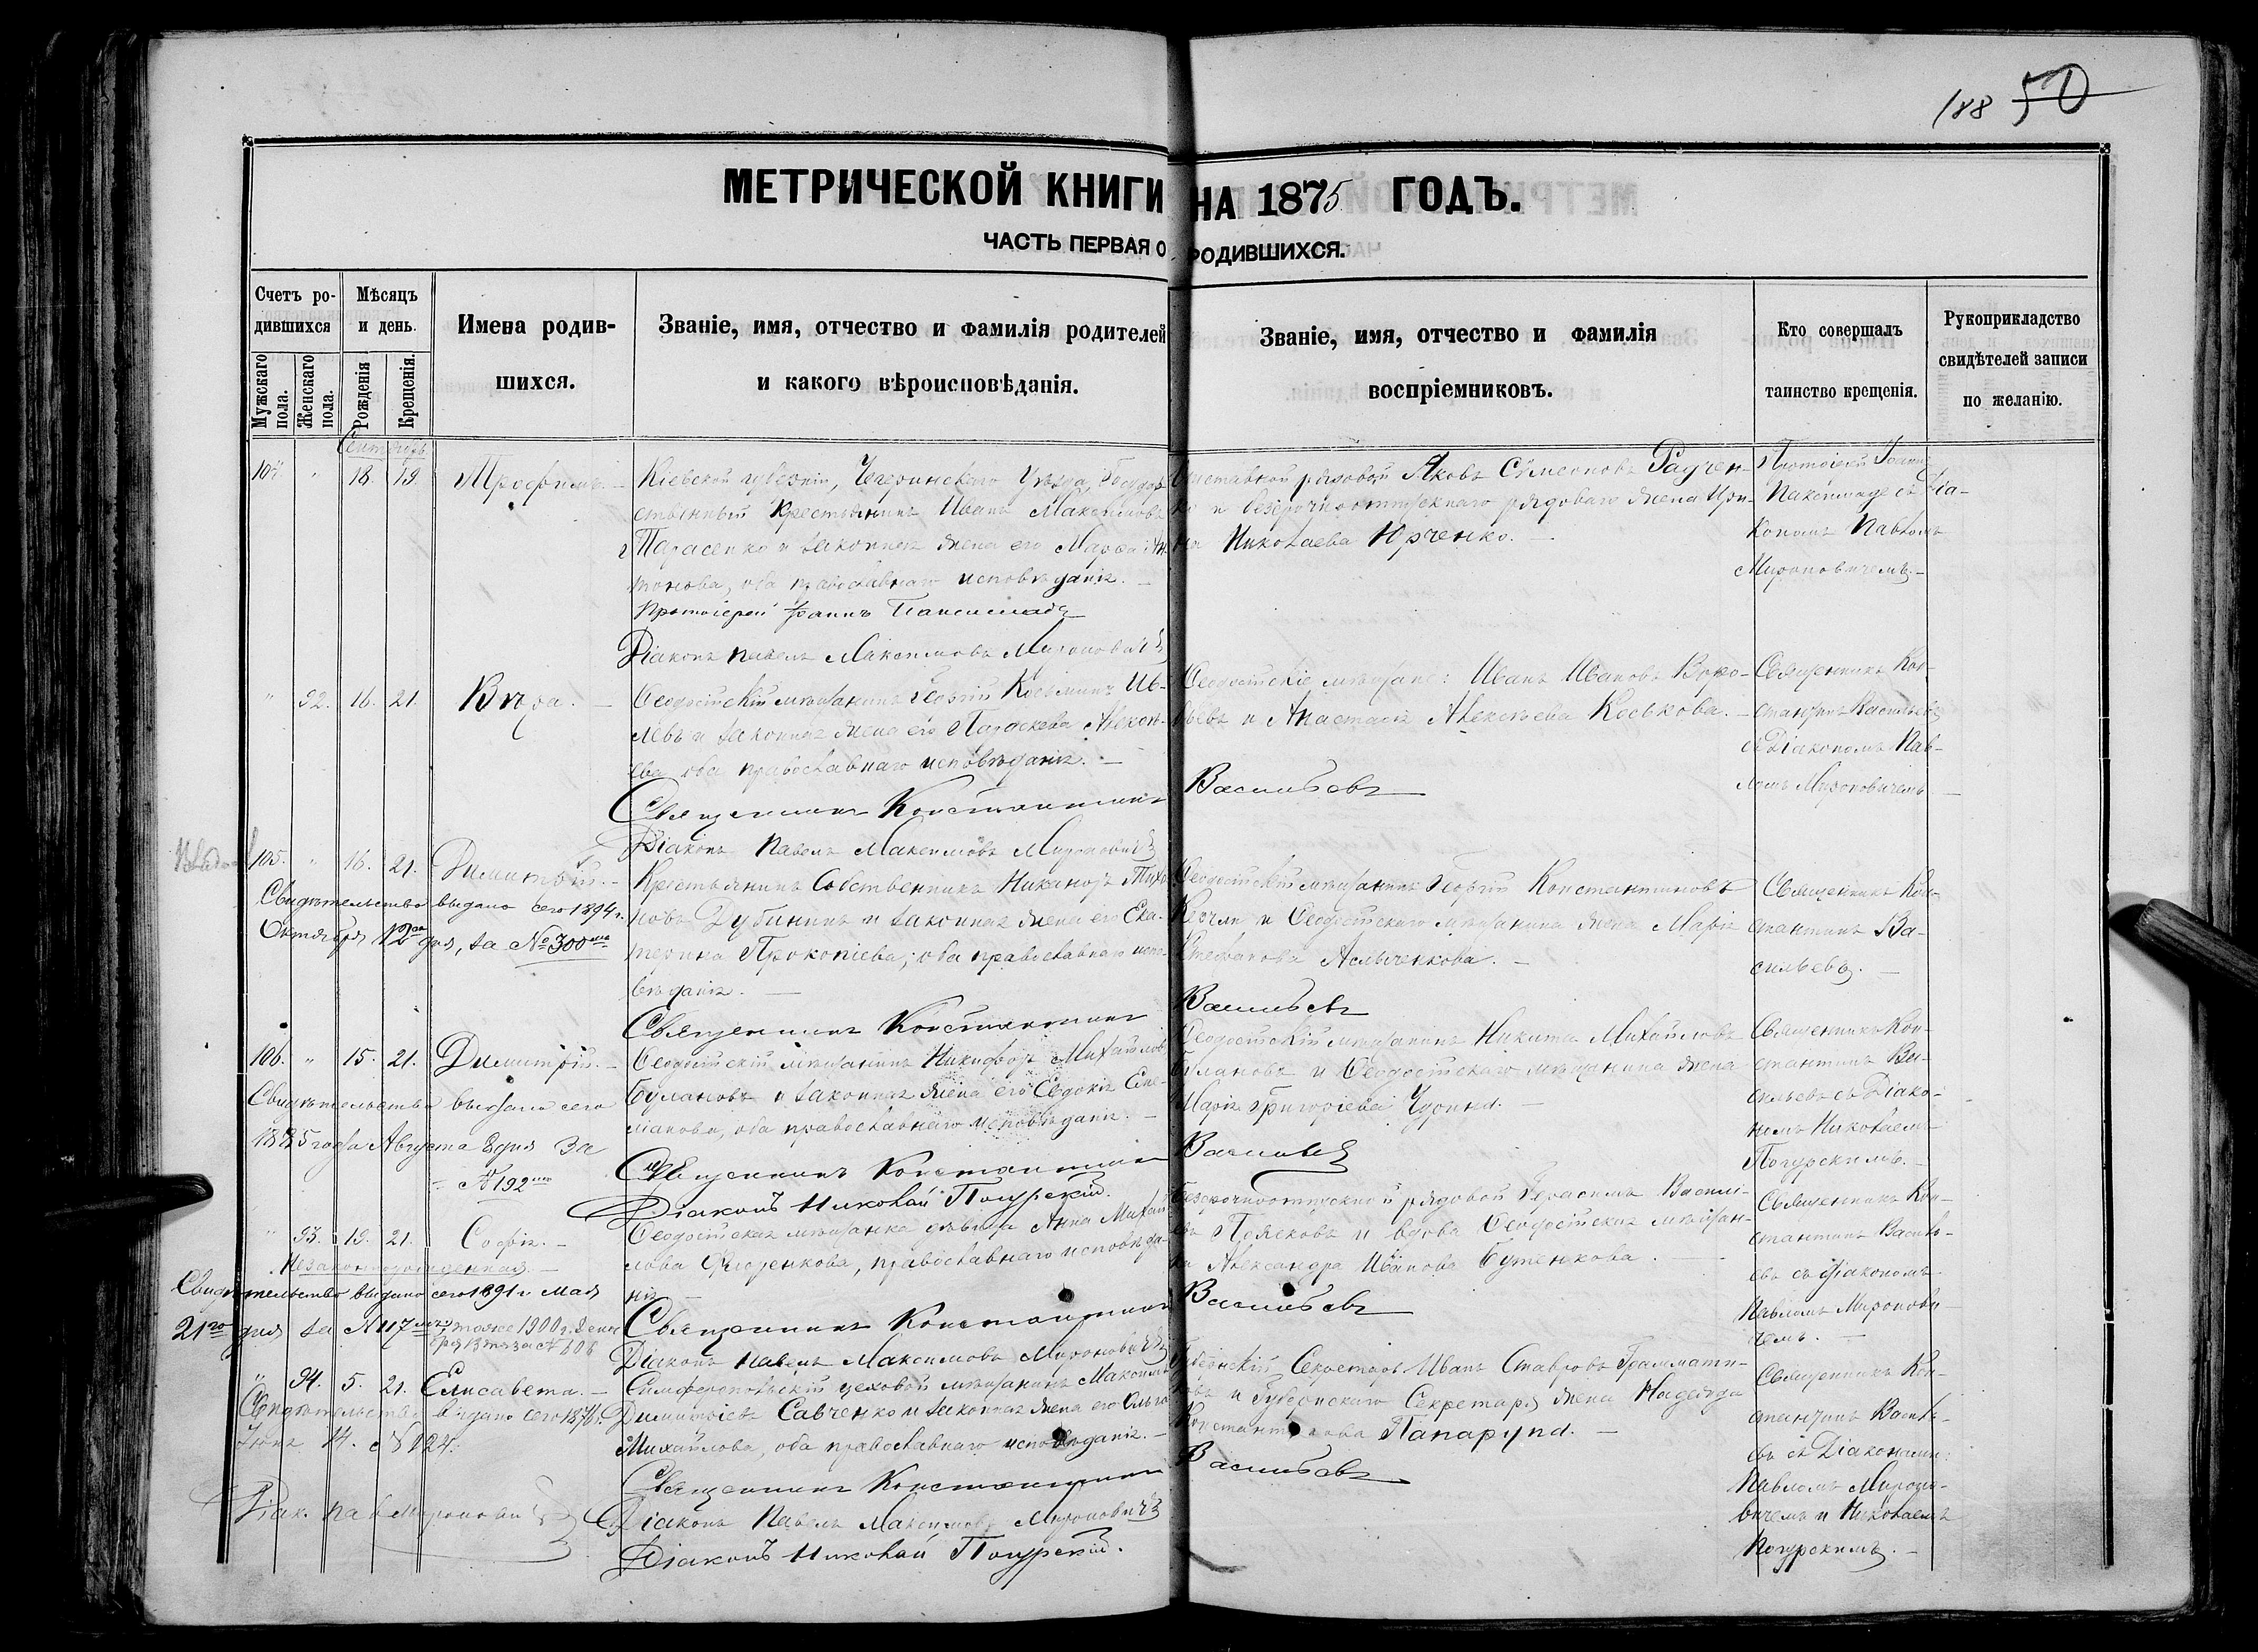 188 50
МЕТРИЧЕСКОЙ КНИГИ НА 1875 ГОДЪ.
ЧАСТЬ ПЕРВАЯ О РОДИВШИХСЯ.
Счетъ родившихся
Мужскаго пола.
Женскаго пола.
Мѣсяцъ и день.
Рожденія
Крещенія.
Имена родив-
шихся.
Званіе, имя, отчество и фамилія родителей
и какого вѣроисповѣданія.
Званіе, имя, отчество и фамилія
воспріемниковъ.
Кто совершалъ
таинство крещенія.
Рукоприкладство
свидѣтелей записи
по желанію.
Сентябрь
104. " 18. 19. Трофимъ.
Кіевской губерніи, Чегеринскаго Уѣзда, Государ-
ственный Крестьянинъ Иванъ Максимовъ
Тарасенко и законная жена его Марѳа Ан-
тонова, оба православнаго исповѣданія.
Протоіерей Іоаннъ
Діаконъ Павелъ Максимовъ Мироновичъ
рядовой Яковъ Сѵмеоновъ
и безсрочноотпускнаго рядоваго жена Ири-
на Николаева Юрченко.
Протоіерей Іоаннъ
съ Діа-
кономъ Павломъ
Мироновичемъ.
" 92. 16. 21. Вѣра.
Ѳеодосійскій мѣщанинъ Георгій Косьминъ Ив-
левъ и законная жена его Параскева Алексѣ-
ева оба православнаго исповѣданія.
Священникъ Константинъ Васильевъ
Діаконъ Павелъ Максимовъ Мироновичъ
Ѳеодосійскіе мѣщане: Иванъ Ивановъ Воро-
бьевъ и Анастасія Алексѣева Коськова.
Священникъ Кон-
стантинъ Васильевъ
съ Діакономъ Пав-
ломъ Мироновичемъ
105. " 16. 21. Димитрій.
Свидѣтельство выдано сего 1894 г.
Октября 12го дня, за № 300мъ
Крестьянинъ Собственникъ Никаноръ Тихо-
новъ Дубининъ и законная жена его Ека-
терина Прокопіева, оба православнаго испо-
вѣданія.
Священникъ Константинъ Васильевъ
Ѳеодосійскій мѣщанинъ Георгій Константиновъ
и Ѳеодосійскаго мѣщанина жена Марія
Стефанова
Священникъ Кон-
стантинъ Ва-
сильевъ.
106. " 15. 21. Димитрій.
Свидѣтельство выдано сего
1885 года Августа 8 дня За
№ 192мъ
Ѳеодосійскій мѣщанинъ Никифоръ Михайловъ
Булановъ и законная жена его Евдокія Сте-
оба православнаго исповѣданія.
Священникъ Константинъ Васильевъ
Діаконъ Николай Погурскій.
Ѳеодосійскій мѣщанинъ Никита Михайловъ
Булановъ и Ѳеодосійскаго мѣщанина жена
Марія Григоріева Чурина.
Священникъ Кон-
стантинъ Ва-
сильевъ съ Діако-
номъ Николаемъ
Погурскимъ.
" 93. 19. 21. Софія.
Незаконнорожденная.
Свидѣтельство выдано сего 1891 г. Мая
21го дня за № 117мъ, тоже 1900 г. Дека-
бря 13 за № 606
Ѳеодосійская мѣщанка дѣвица Анна Михай-
лова Флоренкова, православнаго исповѣда-
нія
Священникъ Константинъ Васильевъ
Діаконъ Павелъ Максимовъ Мироновичъ
Безсрочноотпускной рядовой Герасимъ Василі-
евъ Поляковъ и вдова Ѳеодосійская мѣщан-
ка Александра Иванова Бутенкова.
Священникъ Кон-
стантинъ Василь-
евъ съ Діакономъ
Павломъ Миронови-
чемъ.
" 94. 5. 21. Елисавета.
Свидѣтельство выдано сего 1876 г.
Іюня 14. № 124.
Діак. Пав. Миронович
Симферопольскій цеховой мѣщанинъ Максимъ
Димитріевъ Савченко и законная жена его Ольга
Михайлова, оба православнаго исповѣданія.
Священникъ Константинъ Васильевъ
Діаконъ Павелъ Максимовъ Мироновичъ
Діаконъ Николай Погурскій.
Губернскій Секретарь Иванъ Ставровъ Граммати-
ковъ и Губернскаго Секретаря жена Надежда
Константинова Папарупа.
Священникъ Кон-
стантинъ Василь-
евъ съ Діаконами:
Павломъ Мироно-
вичемъ и Николаемъ
Погурскимъ.